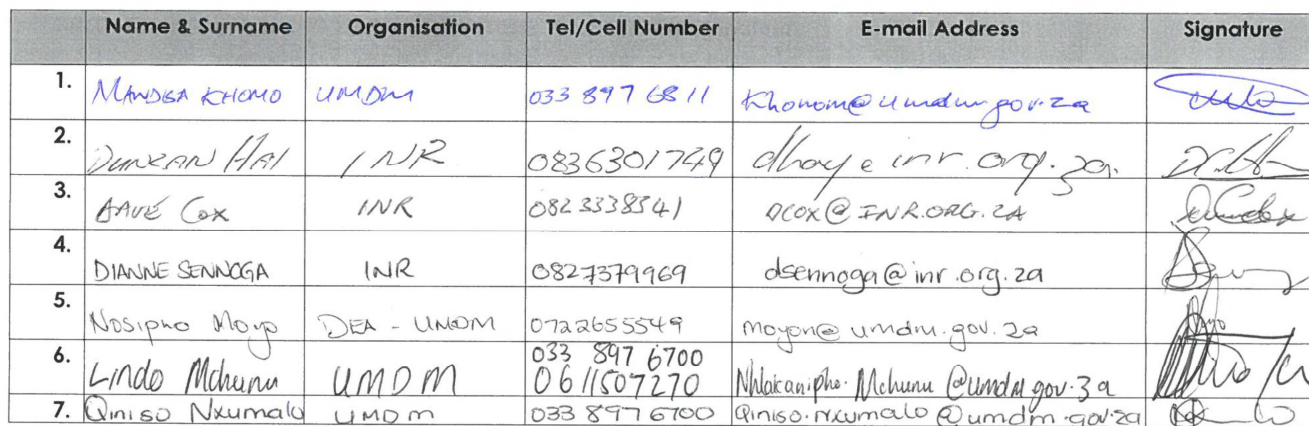 Name & Surname Organisation Tel/Cell Number E-mail Address Signature
1. MANDISA KHOMO UMDM 033 897 6811 Khomom@umdm.gov.za
2. DUNCAN HAY INR 0836301749 dhay@inr.org.za.
3. DAVE Cox INR 0823338341 DCOX@INR.ORG.ZA
4. DIANNE SENNOGA INR 0827379969 dsennoga@inr.org.za
5. Nosipho Moyo DEA - UMDM 0722655549 moyon@umdm.gov.za
033 897 6700
6. Lindo Mchunu UMDM 0611507270 Nhlakanipho.Mchunu@umdm.gov.za
7. Qiniso Nxumalo UMDM 033 897 6700 Qiniso.nxumalo@umdm.gov.za